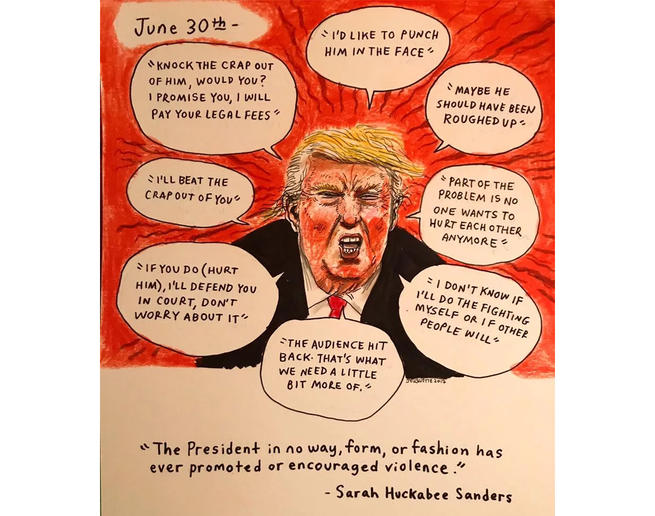 June 30th -
"I'D LIKE TO PUNCH
HIM IN THE FACE"
"KNOCK THE CRAP OUT
OF HIM, WOULD YOU?
I PROMISE YOU, I WILL
PAY YOUR LEGAL FEES"
"MAYBE HE
SHOULD HAVE BEEN
ROUGHED UP"
"I'LL BEAT THE
CRAP OUT OF YOU"
"PART OF THE
PROBLEM IS NO
ONE WANTS TO
HURT EACH OTHER
ANYMORE"
"IF YOU DO (HURT
HIM), I'LL DEFEND YOU
IN COURT, DON'T
WORRY ABOUT IT"
"I DON'T KNOW IF
I'LL DO THE FIGHTING
MYSELF OR IF OTHER
PEOPLE WILL"
"THE AUDIENCE HIT
BACK. THAT'S WHAT
WE NEED A LITTLE
BIT MORE OF."
"The President in no way, form, or fashion has
ever promoted or encouraged violence."
- Sarah Huckabee Sanders